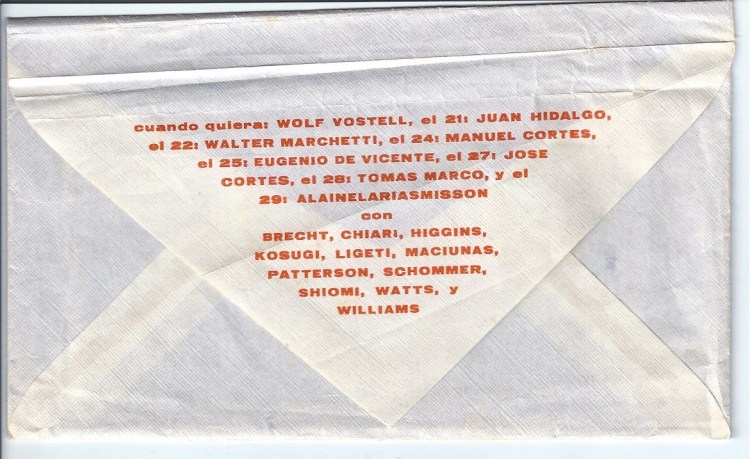 cuando quiera: WOLF VOSTELL, el 21: JUAN HIDALGO,
el 22: WALTER MARCHETTI, el 24: MANUEL CORTES,
el 25: EUGENIO DE VICENTE, el 27: JOSE
CORTES, el 28: TOMAS MARCO, y el
29: ALAINELARIASMISSON
con
BRECHT, CHIARI, HIGGINS,
KOSUGI, LIGETI, MACIUNAS,
PATTERSON, SCHOMMER,
SHIOMI, WATTS, y
WILLIAMS